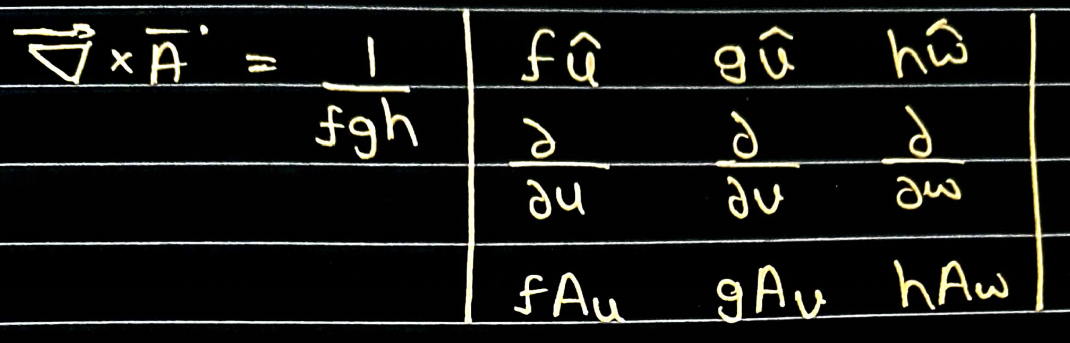 ∇⃗ × A̅ = 1/fgh | fû gû hŵ |
| ∂/∂u ∂/∂v ∂/∂w |
| fAᵤ gAᵥ hA_w |